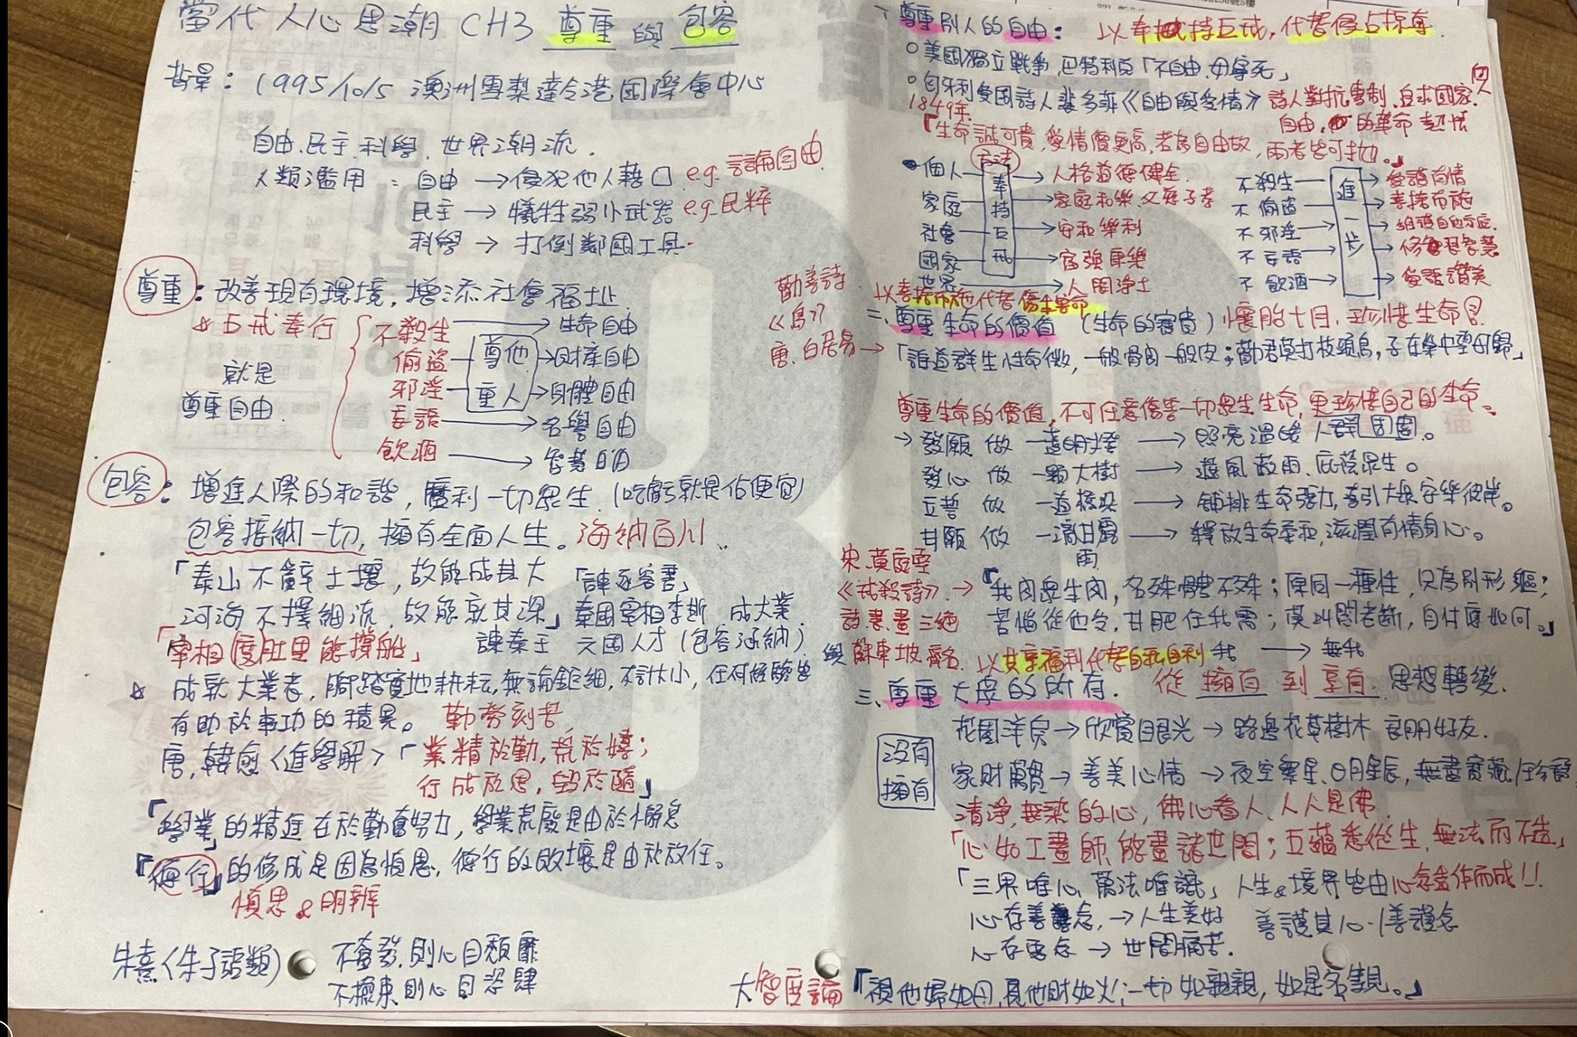 當代人心思潮 CH3 尊重與包容
背景：1995/10/5 澳洲雪梨達令港國際會中心
自由.民主.科學.世界潮流.
人類濫用：自由 → 侵犯他人藉口 e.g. 言論自由
民主 → 犧牲弱小武器 e.g. 民粹
科學 → 打倒鄰國工具.
尊重：改善現有環境，增添社會福祉
☆五戒奉行
就是
尊重自由.
不殺生 → 生命自由
偷盜 → 財產自由
邪淫 → 身體自由
妄語 → 名譽自由
飲酒 → 智慧自由
尊他
重人
包容：增進人際的和諧，歷利一切眾生.(吃虧就是佔便宜)
包容接納一切，擁有全面人生。海納百川、
「泰山不辭土壤，故能成其大
河海不擇細流，故能就其深」
「諫逐客書」
秦國宰相李斯 成大業
諫秦王 六國人才(包容涵納)
「宰相度肚里能撐船」
☆ 成就大業者，腳踏實地耕耘，無論鉅細，不計大小，任何經驗皆
有助於事功的積累。 勤勞刻苦
唐，韓愈〈進學解〉「業精於勤，荒於嬉；
行成於思，毀於隨」
「學業」的精進在於勤奮努力，學業荒廢是由於懈怠
『德行』的修成是因為慎思，德行的敗壞是由於放任。
慎思&明辨
朱熹〈朱子語類〉 不奮發，則心日頹靡
不撿束，則心日恣肆
一、尊重別人的自由：以奉持五戒，代替侵占掠奪.
○美國獨立戰爭，巴特利克「不自由.毋寧死」
○匈牙利愛國詩人裴多菲《自由與愛情》詩人對抗專制.追求國家.個人
1849年. 自由，的革命志懷
「生命誠可貴，愛情價更高，若為自由故，兩者皆可拋。」
方法
奉持五戒
個人 → 人格道德健全.
家庭 → 家庭和樂.父慈子孝
社會 → 安和樂利
國家 → 富強康樂
世界 → 人間淨土
進一步
不殺生 → 愛護有情
不偷盜 → 喜捨布施
不邪淫
不妄語
不飲酒
以喜捨布施代替傷生害命
二、尊重生命的價值 (生命的寶貴) 懷胎十月，珍惜生命
勸善詩
《鳥》
唐.白居易 → 「誰道群生性命微，一般骨肉一般皮；勸君莫打枝頭鳥，子在巢中望母歸」
尊重生命的價值，不可任意傷害一切眾生生命，更珍惜自己的生命。
→ 發願 做 一盞明燈 → 照亮溫暖人群周圍。
發心 做 一顆大樹 → 遮風蔽雨.庇蔭眾生。
立誓 做 一道橋梁 → 鋪排生命張力，牽引大眾安樂彼岸。
甘願 做 一滴甘露 → 釋放生命垂危，滋潤有情身心。
雨
宋.黃庭堅
《戒殺詩》. → 『我肉眾生肉，名殊體不殊；原同一種性，只為別形軀；
詩.書.畫三絕 苦惱從他受，甘肥任我需；莫叫閻老斷，自忖應如何。』
與蘇東坡齊名. 以共享福利代替自私自利 我 → 無我
三、尊重大眾的所有. 從擁有到享有.思想轉變.
沒有
擁有
花園洋房 → 欣賞眼光 → 路邊花草樹木 良朋好友.
家財萬貫 → 善美心情 → 夜空繁星.日月星辰，無盡寶藏/珍寶
清淨，無染的心，佛心看人.人人是佛.
「心如工畫師，能畫諸世間；五蘊悉從生，無法而不造」
「三界唯心，萬法唯識」人生&境界皆由心念造作而成!!
心存善念，→ 人生美好 善護其心.善護念
心存惡念 → 世間痛苦.
大智度論『視他婦如母，見他財如火；一切如親親，如是名等見。』